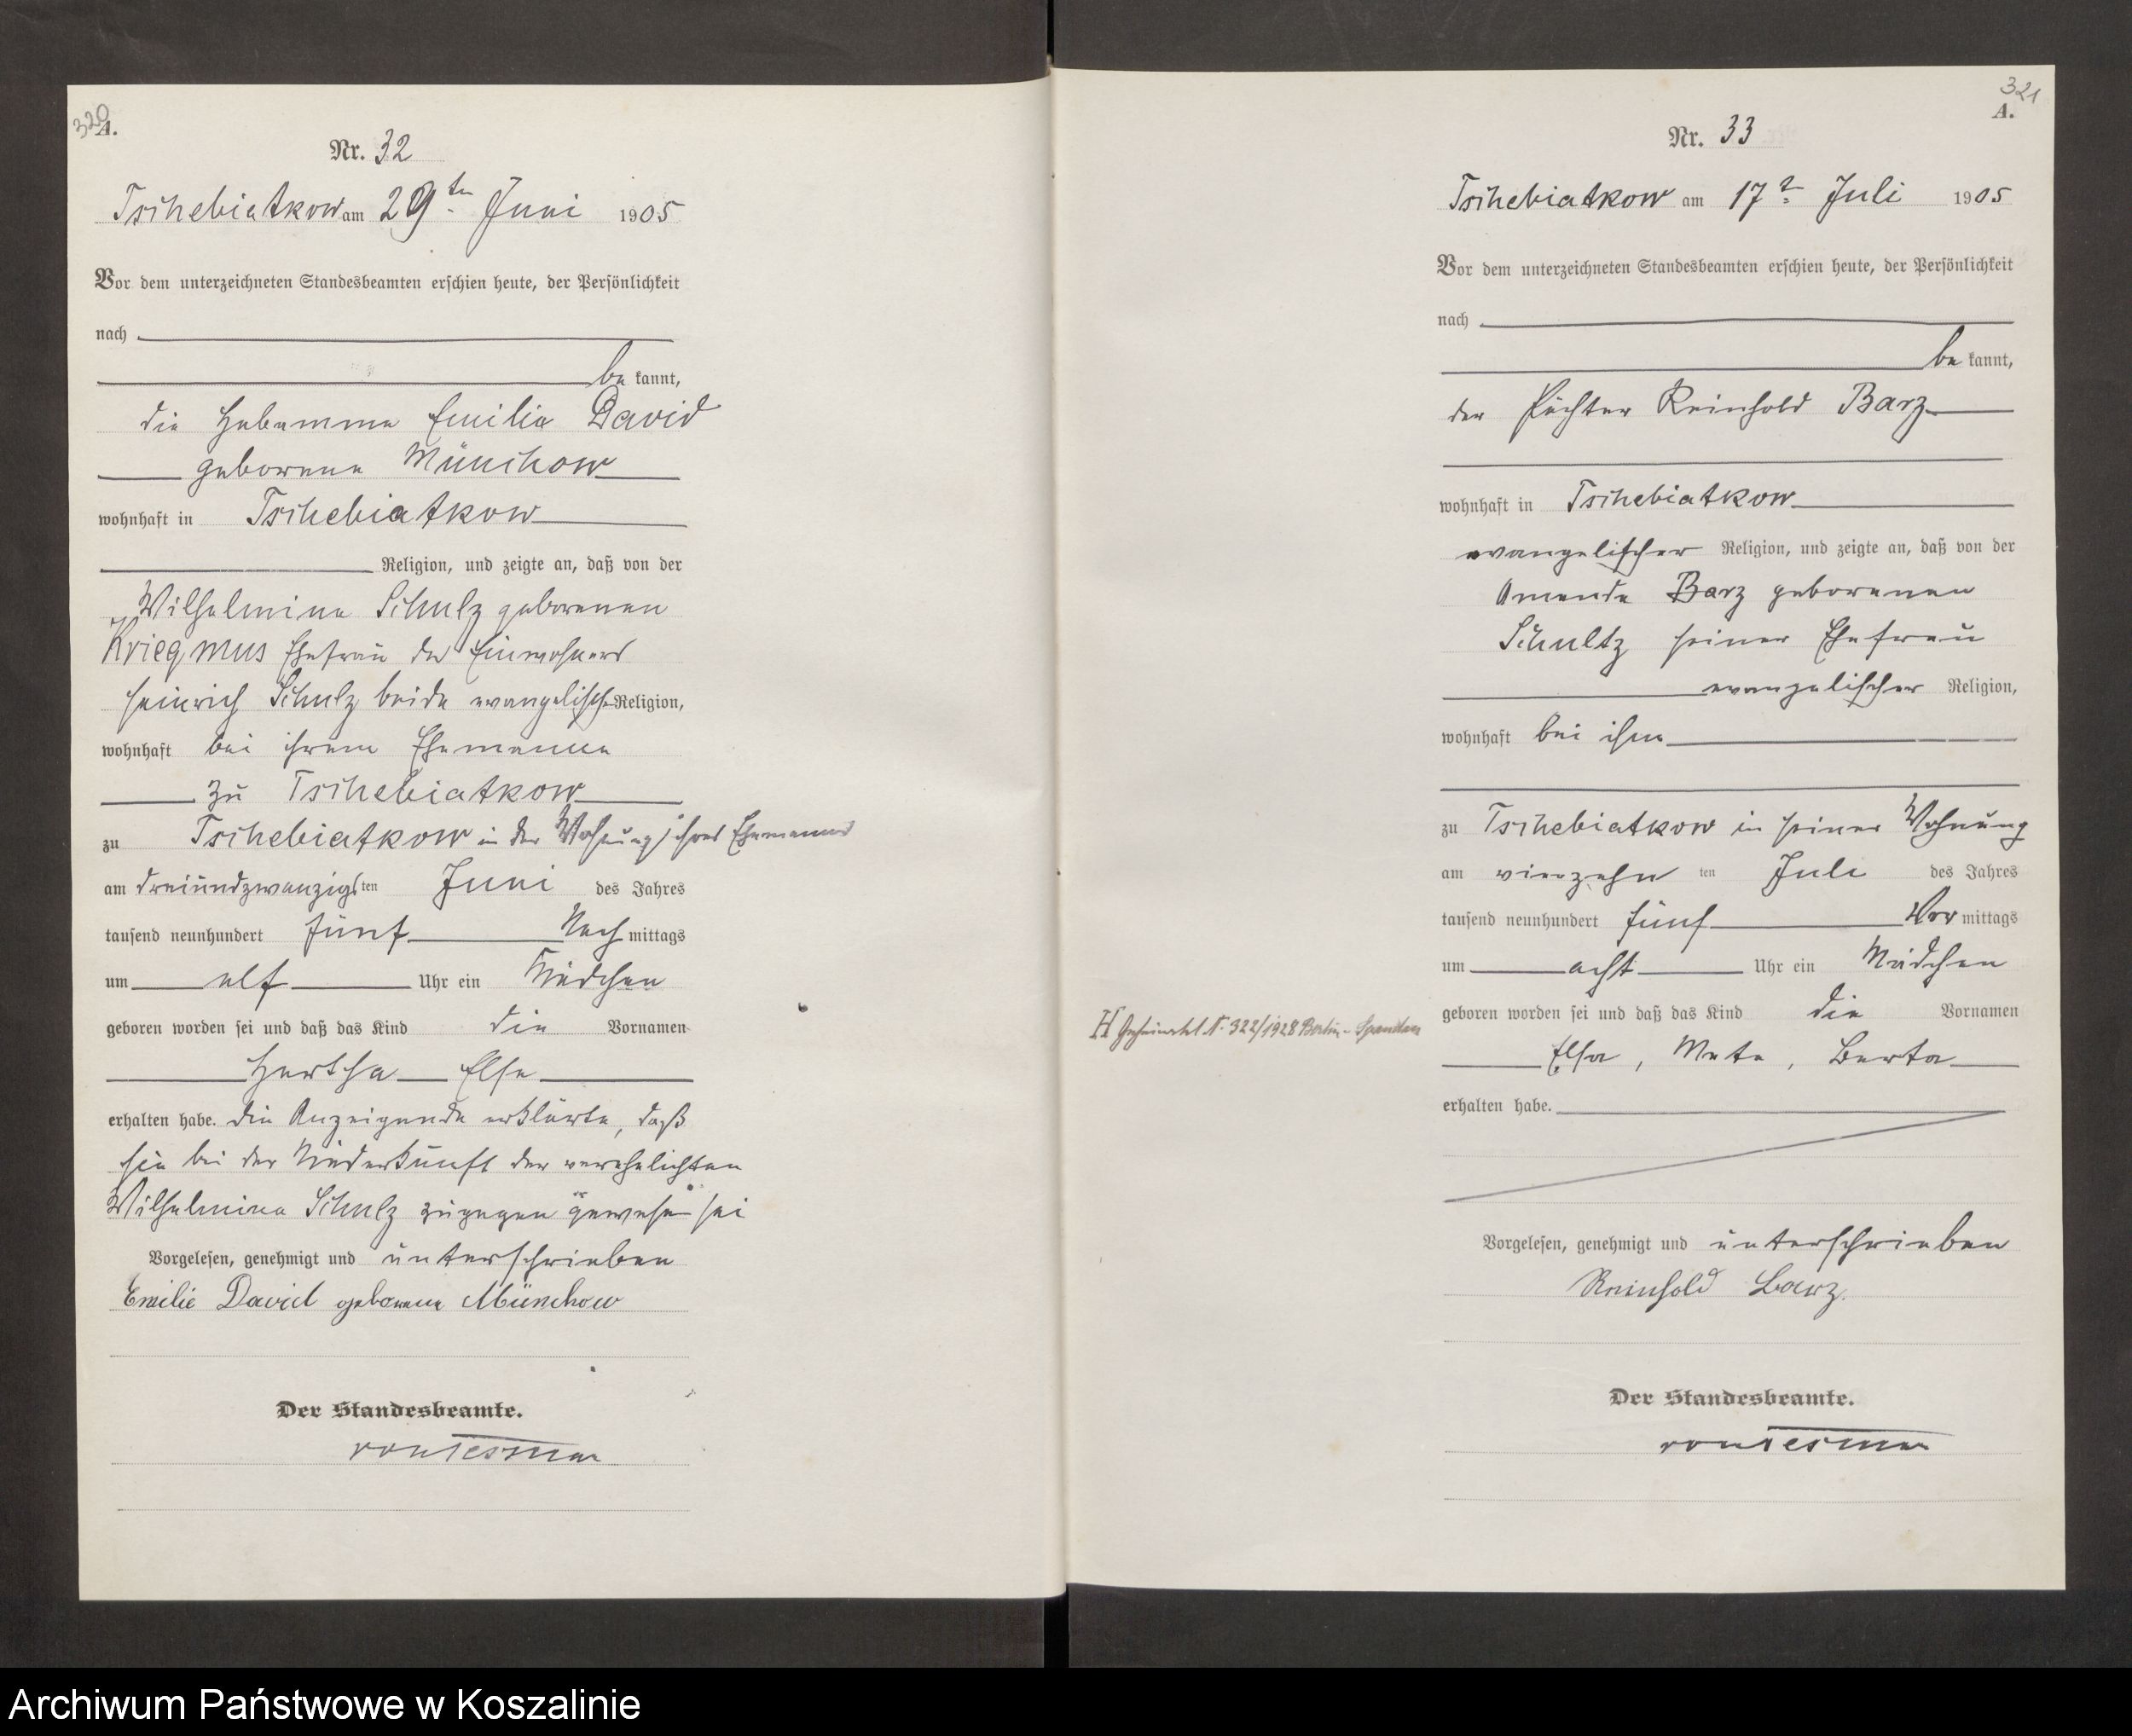 320
A.
Nr. 32
Tschebiatkow am 29ten Juni 1905
Vor dem unterzeichneten Standesbeamten erschien heute, der Persönlichkeit
nach
be kannt,
die Hebamme Emilie David
geborene Münchow
wohnhaft in Tschebiatkow
Religion, und zeigte an, daß von der
Wilhelmine Schulz geborenen
Kriegmus Ehefrau des Einwohners
Heinrich Schulz beide evangelischer Religion,
wohnhaft bei ihrem Ehemanne
zu Tschebiatkow
zu Tschebiatkow in der Wohnung ihres Ehemannes
am dreiundzwanzigsten Juni des Jahres
tausend neunhundert fünf Nach mittags
um elf Uhr ein Mädchen
geboren worden sei und daß das Kind die Vornamen
Hertha Else
erhalten habe. Die Anzeigende erklärte, daß
sie bei der Niederkunft der verehelichten
Wilhelmine Schulz zugegen gewesen sei
Vorgelesen, genehmigt und unterschrieben
Emilie David geborene Münchow
Der Standesbeamte.
321
A.
Nr. 33
Tschebiatkow am 17 Juli 1905
Vor dem unterzeichneten Standesbeamten erschien heute, der Persönlichkeit
nach
be kannt,
der Pächter Reinhold Barz
wohnhaft in Tschebiatkow
evangelischer Religion, und zeigte an, daß von der
Amande Barz geborenen
Schultz seiner Ehefrau
evangelischer Religion,
wohnhaft bei ihm
zu Tschebiatkow in seiner Wohnung
am vierzehn ten Juli des Jahres
tausend neunhundert fünf Vor mittags
um acht Uhr ein Mädchen
H Geheiratet N. 322/1928 Berlin-Spandau
geboren worden sei und daß das Kind die Vornamen
Elsa, Meta, Berta
erhalten habe.
Vorgelesen, genehmigt und unterschrieben
Reinhold Barz.
Der Standesbeamte.
Archiwum Państwowe w Koszalinie